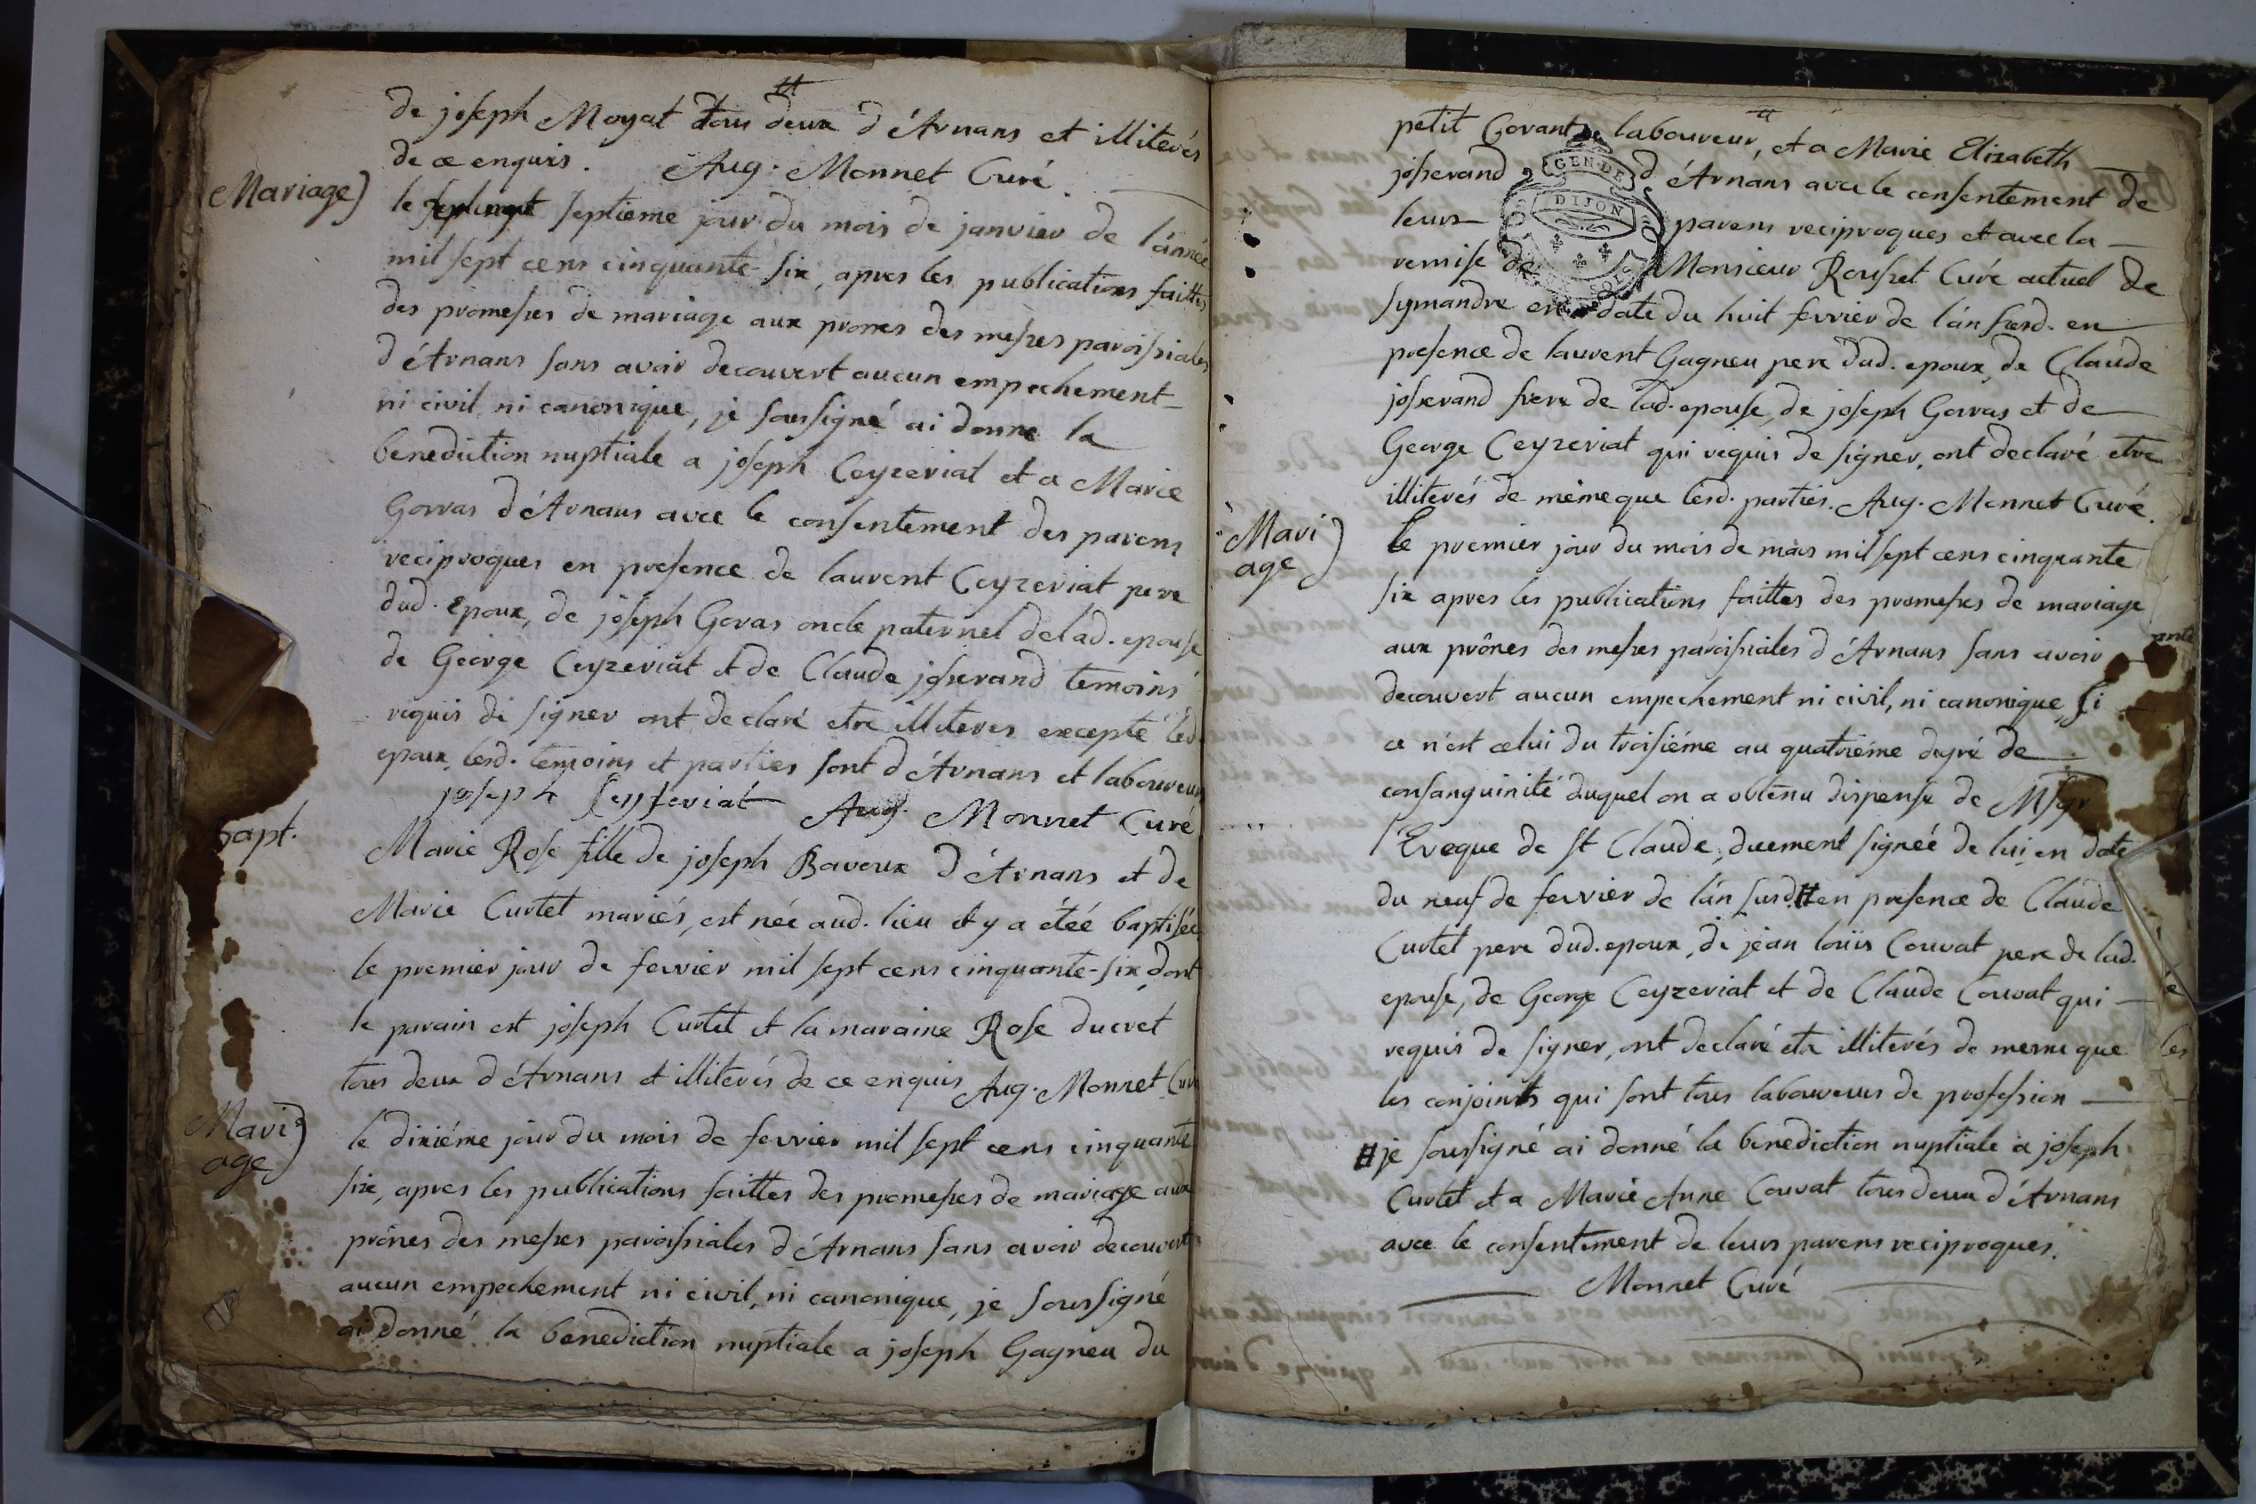 de joseph Moyat tous deux d'Arnans et illiterés
de ce enquis. Aug. Monnet Curé
Mariage)
le septieme jour du mois de janvier de l'année
mil sept cens cinquante-six, apres les publications faittes
des promesses de mariage aux prones des messes paroissiales
d'Arnans sans avoir decouvert aucun empechement
ni civil ni canonique, je soussigné ai donne la
benediction nuptiale a joseph Ceyzeriat et a Marie
Gorras d'Arnans avec le consentement des parens
reciproques en presence de laurent Ceyzeriat pere
dud. epoux, de joseph Goras oncle paternel de lad. epouse
de George Ceyzeriat et de Claude josserand temoins
requis de signer ont declaré etre illiteres excepté led.
epoux, lesd. temoins et parties sont d'Arnans et laboureurs
joseph Seysseriat Aug. Monnet Curé
bapt.
Marie Rose fille de joseph Baveux d'Arnans et de
Marie Curtet mariés, est née aud. lieu et y a étéé baptisée
le premier jour de fevrier mil sept cens cinquante-six, dont
le parain est joseph Curtet et la maraine Rose ducret
tous deux d'Arnans et illiterés de ce enquis Aug. Monnet Curé
Mari
age)
le dixiéme jour du mois de fevrier mil sept cens cinquante
six, apres les publications faittes des promesses de mariage aux
prônes des messes paroissiales d'Arnans sans avoir decouvert
aucun empechement ni civil, ni canonique, je soussigné
ai donné la benediction nuptiale a joseph Gagneu du
petit Corant laboureur, et a Marie Elizabeth
josserand d'Arnans avec le consentement de
leurs parens reciproques et avec la
remise de Monsieur Rousset Curé actuel de
symandre en date du huit fevrier de l'an susd. en
presence de laurent Gagneu pere dud. epoux, de Claude
josserand frere de lad. epouse, de joseph Gorras et de
George Ceyzeriat qui requis de signer, ont declaré etre
illiterés de même que lesd. parties. Aug. Monnet Curé.
GEN. DE
DIJON
Mari
age)
Le premier jour du mois de mars mil sept cens cinquante
six apres les publications faittes des promesses de mariage
aux prônes des messes paroissiales d'Arnans sans avoir
decouvert aucun empechement ni civil, ni canonique, si
ce n'est celui du troisiéme au quatriéme degré de
consanguinité duquel on a obtenu dispense de Msgr
l'Eveque de st Claude, duement signée de lui, en date
du neuf de fevrier de l'an susd. # en presence de Claude
Curtet pere dud. epoux, de jean louis Couvat pere de lad.
epouse, de George Ceyzeriat et de Claude Couvat qui
requis de signer, ont declaré etre illiterés de meme que
les conjoints qui sont tous laboureurs de profession
# je soussigné ai donné la benediction nuptiale a joseph
Curtet et a Marie Anne Couvat tous deux d'Arnans
avec le consentement de leurs parens reciproques.
Monnet Curé